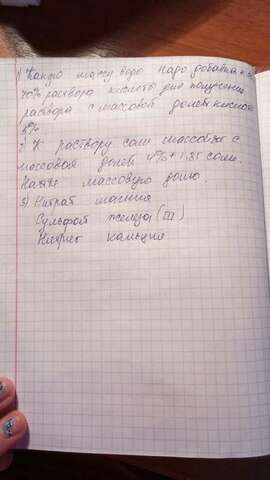 1) Какую массу воды надо добавить к
40% раствора кислоты для получения
раствора с массовой долей кислоты
8%
2) К раствору соли массой с
массовой долей 4% + соли.
Найти массовую долю.
3) Нитрат магния
Сульфат железа (III)
Нитрат кальция